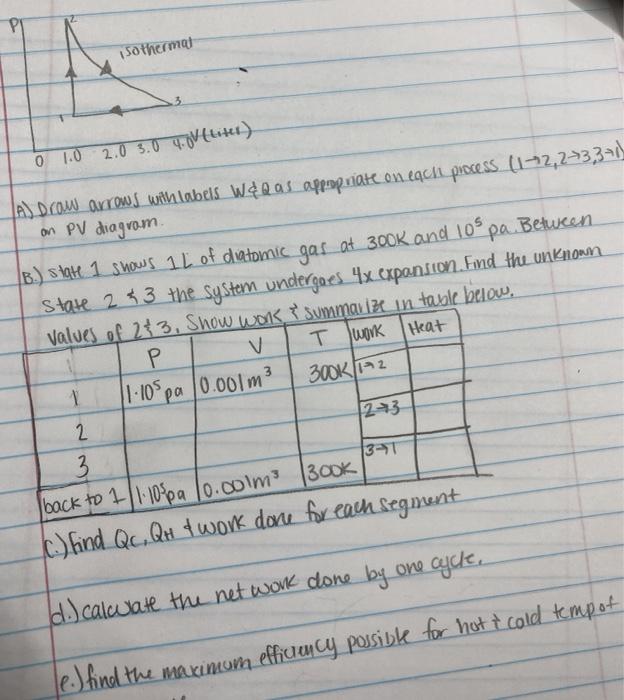 P
2
isothermal
1
3
0 1.0 2.0 3.0 4.0 V(Liter)
A) Draw arrows with labels W & Q as appropriate on each process (1→2, 2→3, 3→1)
on PV diagram.
B.) State 1 shows 1L of diatomic gas at 300K and 10⁵ pa. Between
State 2 & 3 the system undergoes 4x expansion. Find the unknown
values of 2 & 3. Show work & summarize in table below.
P V T Work Heat
1 1·10⁵ pa 0.001m³ 300K 1→2
2 2→3
3 3→1
back to 1 1·10⁵pa 0.001m³ 300K
C.) Find Qc, QH & work done for each segment
d.) calculate the net work done by one cycle.
e.) find the maximum efficiency possible for hot & cold temp of